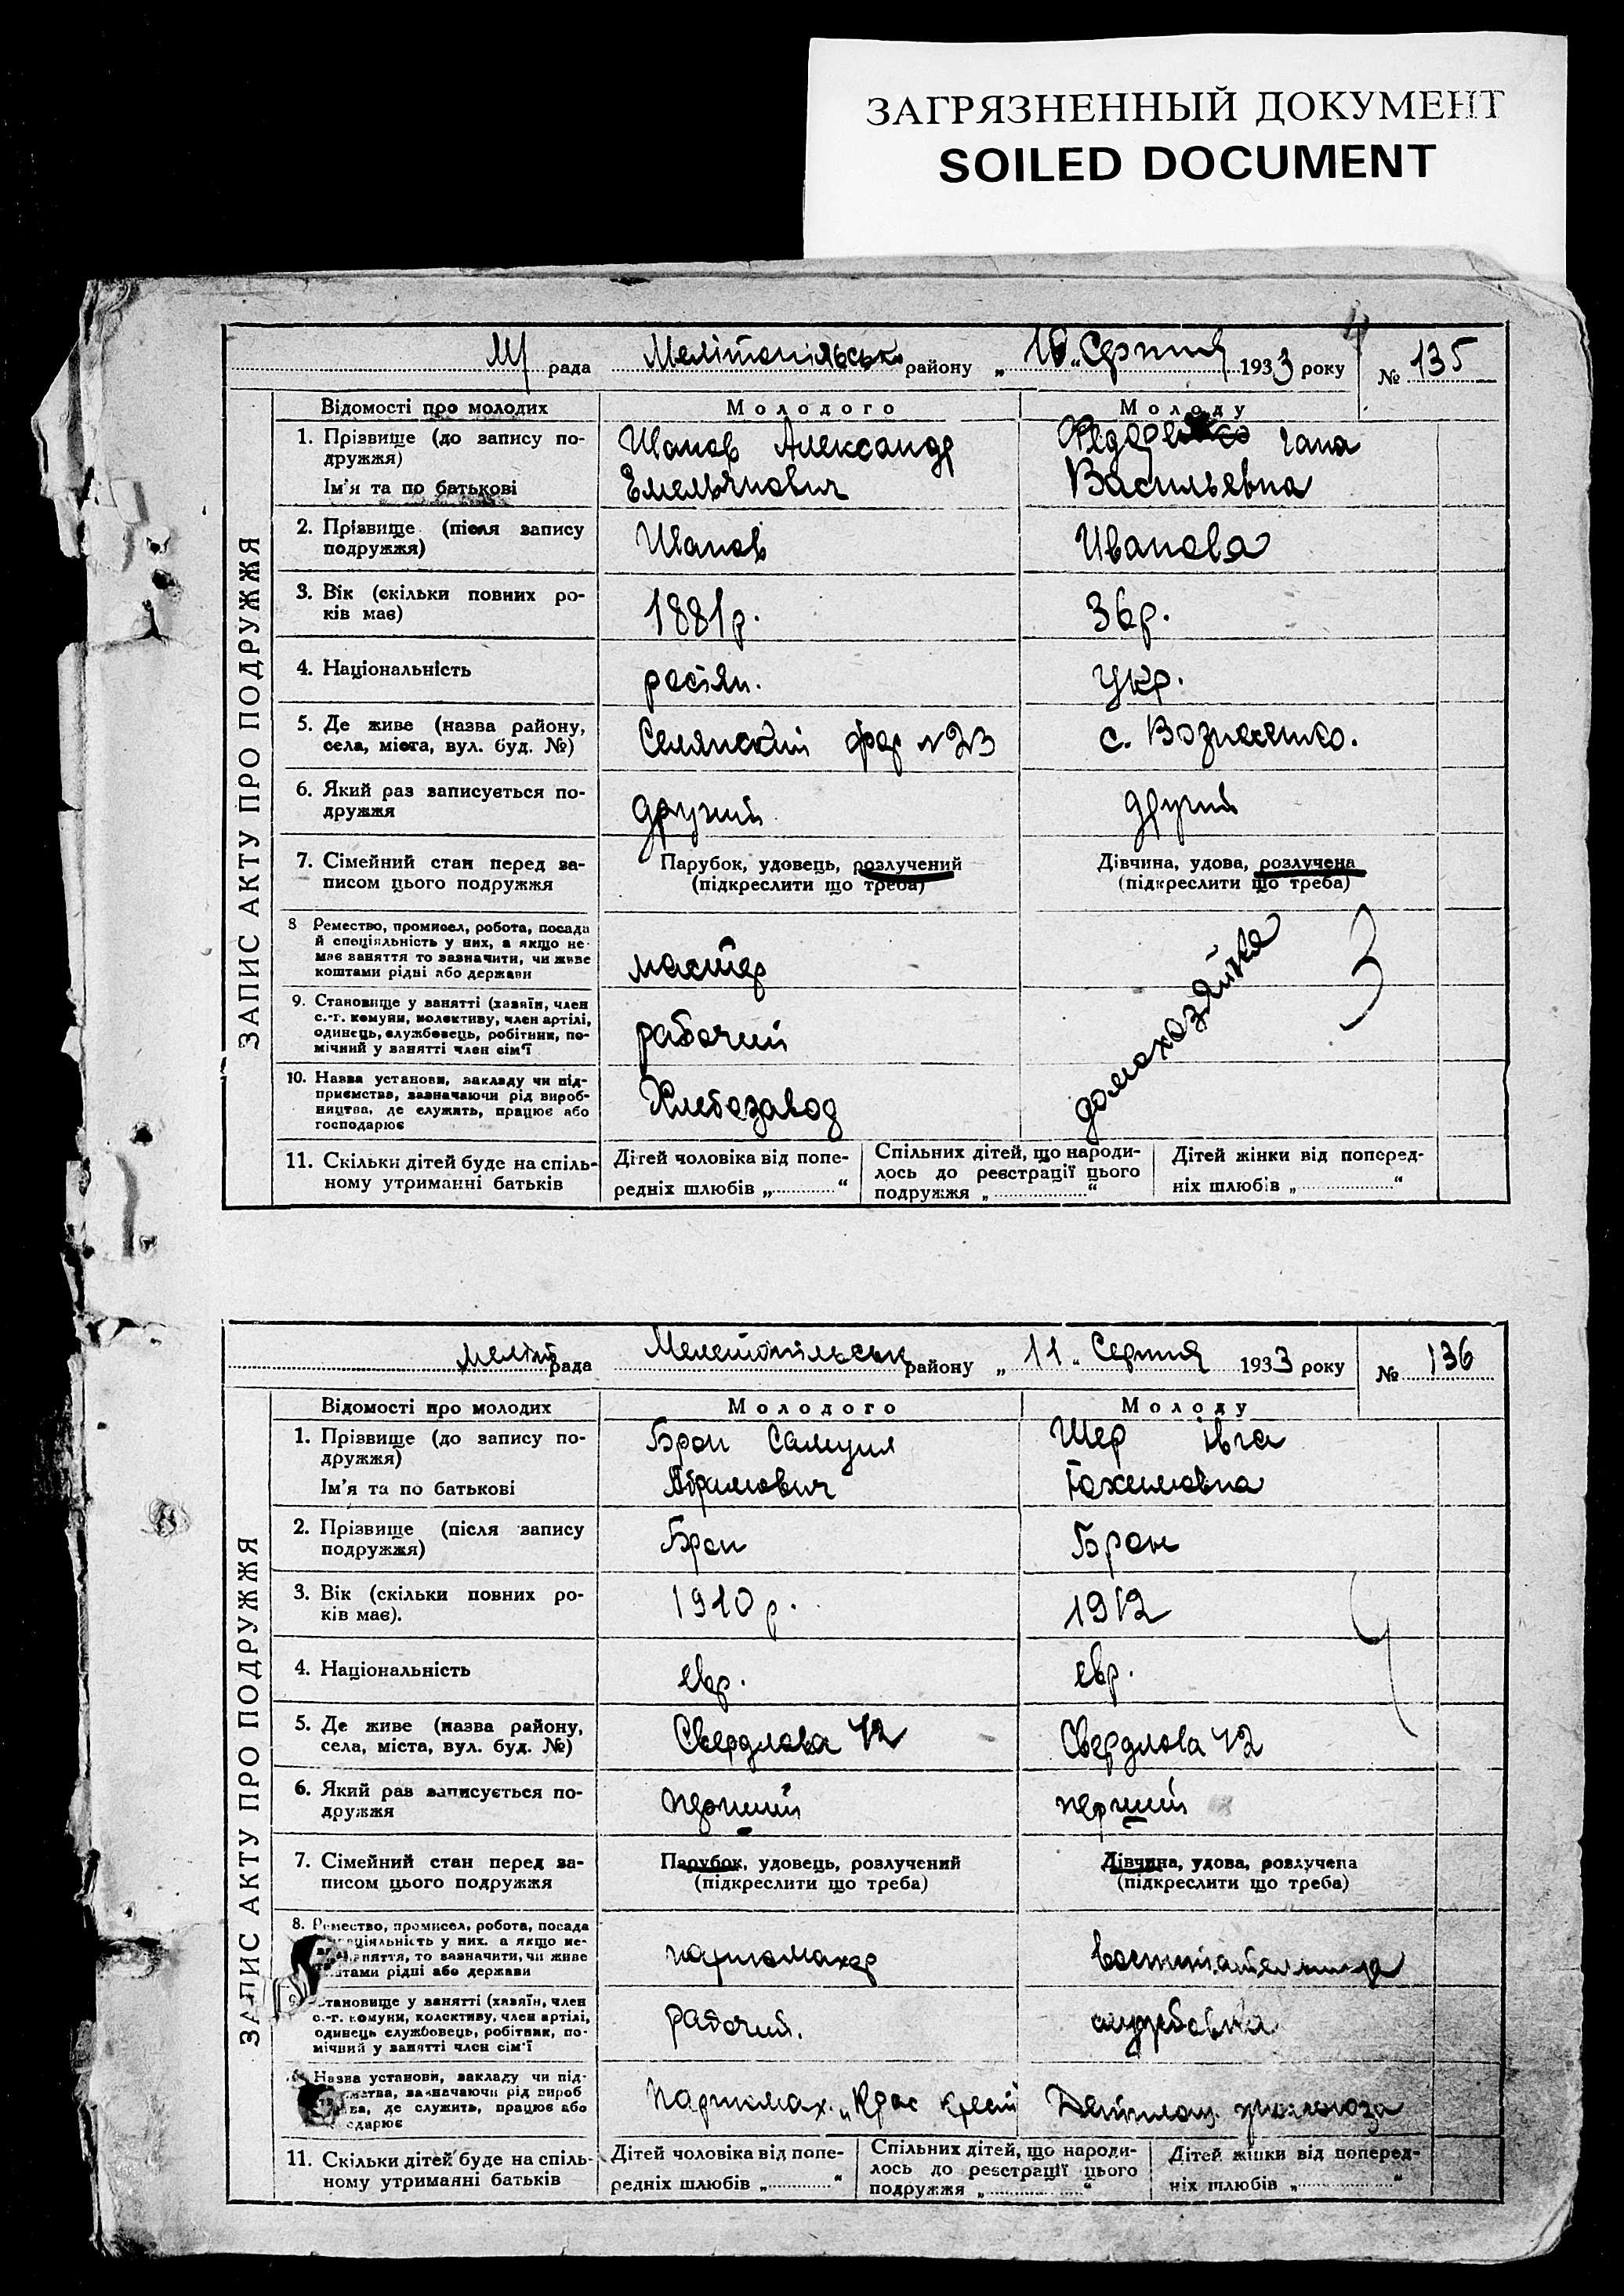 ЗАГРЯЗНЕННЫЙ ДОКУМЕНТ
SOILED DOCUMENT
рада Мелітопільськ району „ 10 „ Серпня 1933 року № 135
ЗАПИС АКТУ ПРО ПОДРУЖЖЯ
Відомості про молодих Молодого Молоду
1. Прізвище (до запису по-
дружжя)
Александр
Ім'я та по батькові Емельянович Васильевна
2. Прізвище (після запису
подружжя)
Иванова
3. Вік (скільки повних ро-
ків має)
1881р. 36р.
4. Національність росіян. укр.
5. Де живе (назва району,
села, міста, вул. буд. №)
с. Вознесенко.
6. Який раз записується по-
дружжя
другий другий
7. Сімейний стан перед за-
писом цього подружжя
Парубок, удовець, розлучений
(підкреслити що треба)
Дівчина, удова, розлучена
(підкреслити що треба)
8 Ремество, промисел, робота, посада
й спеціяльність у них, а якщо не-
має заняття то зазначити, чи живе
коштами рідні або держави
мастер
домохозяйка
9. Становище у занятті (хазяїн, член
с.-г. комуни, колективу, член артілі,
одинець, службовець, робітник, по-
мічний у занятті член сім'ї
рабочий
10. Назва установи, закладу чи під-
приємства, зазначаючи рід вироб-
ництва, де служить, працює або
господарює
Хлебозавод
11. Скільки дітей буде на спіль-
ному утриманні батьків
Дітей чоловіка від попе-
редніх шлюбів „ “
Спільних дітей, що народи-
лось до реєстрації цього
подружжя „ “
Дітей жінки від поперед-
ніх шлюбів „ “
меліт рада Мелетопільськ району „ 11 „ Серпня 1933 року № 136
ЗАПИС АКТУ ПРО ПОДРУЖЖЯ
Відомості про молодих Молодого Молоду
1. Прізвище (до запису по-
дружжя)
Брон Самуил Шер
Ім'я та по батькові Абрамович
2. Прізвище (після запису
подружжя)
Брон Брон
3. Вік (скільки повних ро-
ків має).
1910 р. 1912
4. Національність евр. евр.
5. Де живе (назва району,
села, міста, вул. буд. №)
Свердлова 42 Свердлова 42
6. Який раз записується по-
дружжя
перший перший
7. Сімейний стан перед за-
писом цього подружжя
Парубок, удовець, розлучений
(підкреслити що треба)
Дівчина, удова, розлучена
(підкреслити що треба)
8. Ремество, промисел, робота, посада
у них. а якщо не-
заняття, то зазначити, чи живе
коштами рідні або держави
парикмахер
воспитательница
становище у занятті (хазяїн, член
с.-г. комуни, колективу, член артілі,
одинець службовець, робітник, по-
мічний у занятті член сім'ї
рабочий.
Назва установи, закладу чи під-
зазначаючи рід вироб
де служить, працює або
Парикмах.
11. Скільки дітей буде на спіль-
ному утриманні батьків
Дітей чоловіка від попе-
редніх шлюбів „ “
Спільних дітей, що народи-
лось до реєстрації цього
подружжя „ “
Дітей жінки від поперед-
ніх шлюбів „ “